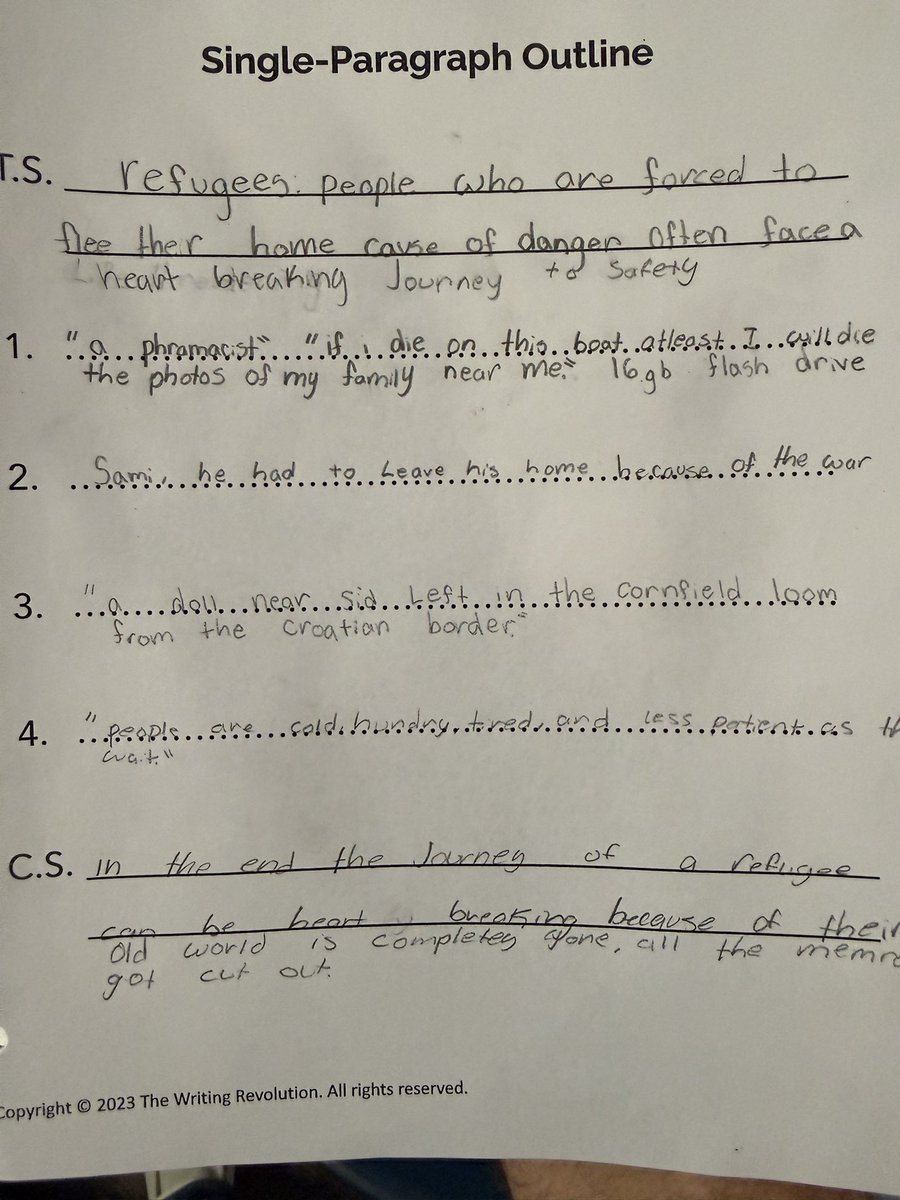 Single-Paragraph Outline
T.S. refugees: people who are forced to
flee their home cause of danger often face a
heart breaking Journey to safety
1. "a phramacist" "if i die on this boat atleast I will die
the photos of my family near me." 16gb flash drive
2. Sami, he had to Leave his home because of the war
3. "a doll near Sid Left in the cornfield loom
from the croatian border."
4. "people are cold, hundry, tired, and less patient as th
wait"
C.S. in the end the Journey of a refugee
can be heart breaking because of their
Old world is completey gone, all the memr
got cut out.
Copyright © 2023 The Writing Revolution. All rights reserved.